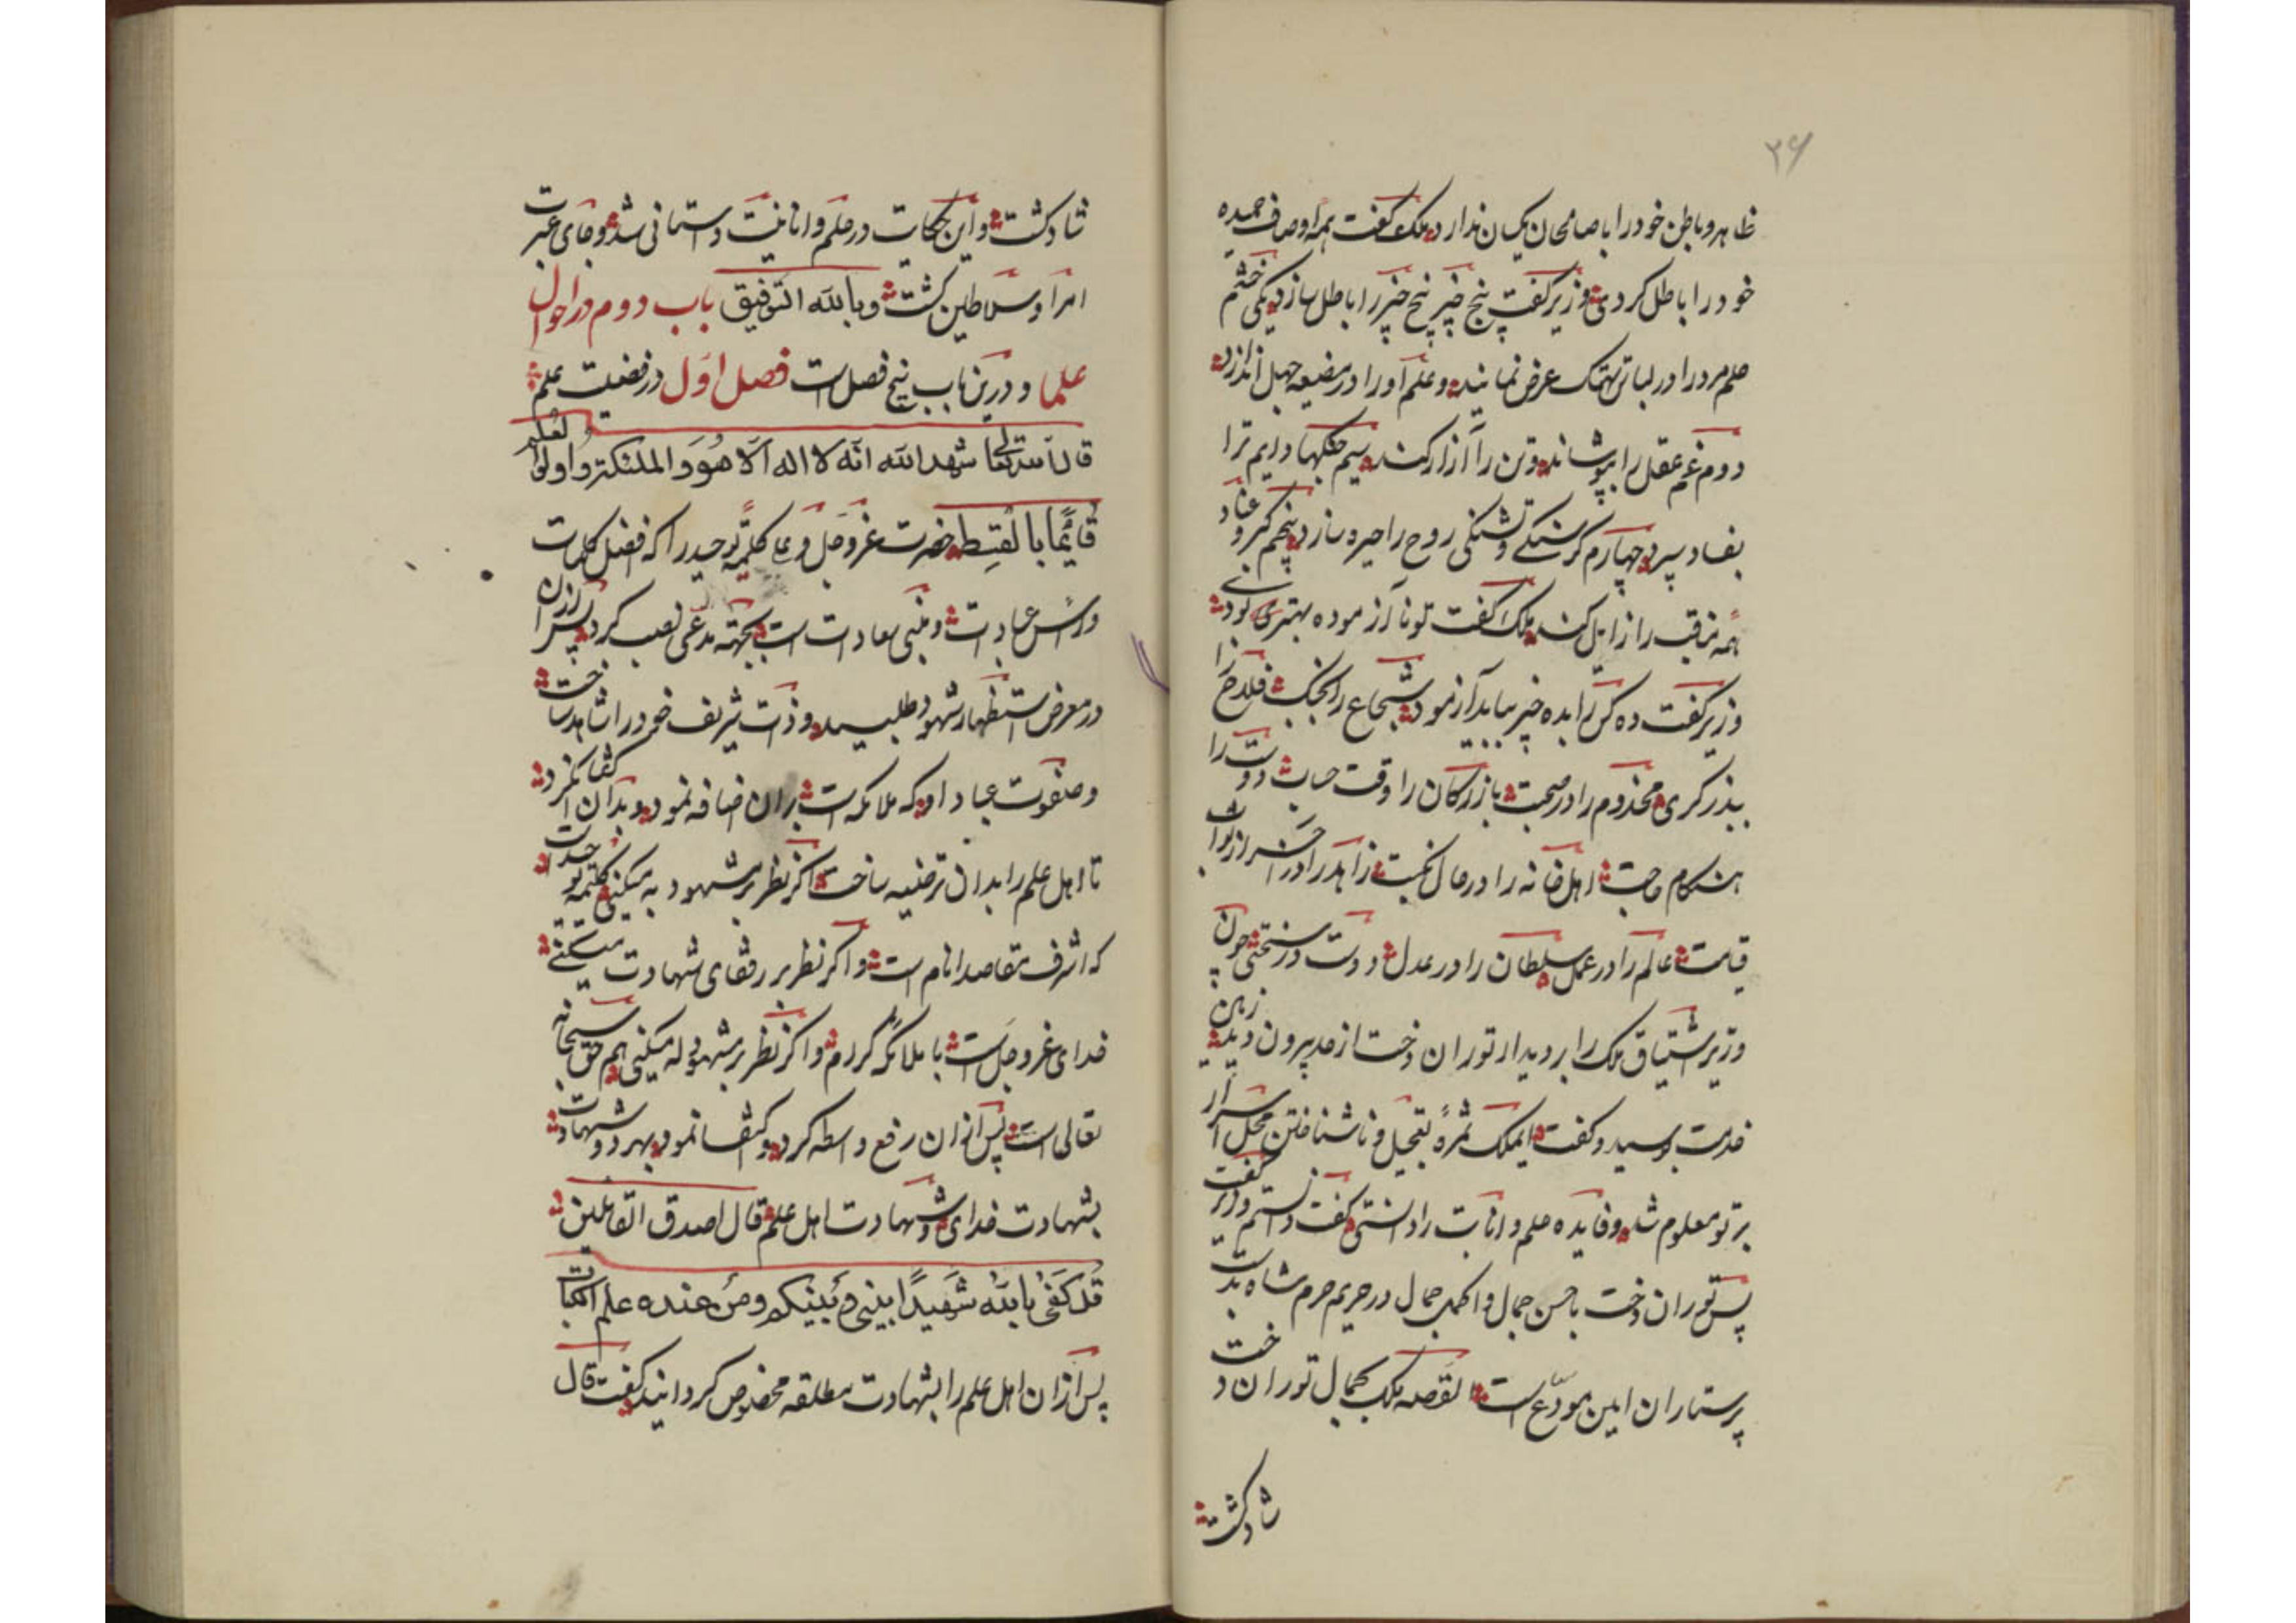 ۲۶
ظاهر و باطن خود را با صالحان یکسان ندارد ملک گفت همه اوصاف حمیده
خود را باطل کردی وزیر گفت پنج چیز پنج چیز را باطل سازد یکی خشم
حلم مرد را در لباس تهتک عرض نماید و علم او را در مضیعه جهل اندازد
دوم غم عقل را بپوشاند و تن را آزار کند سیم جنکها دایم ترا
بفساد سپرد چهارم کرسنکی و تشنکی روح را خیره سازد پنجم کبر و عناد
همه مناقب را زایل کند ملک گفت تو نا آزموده بهتری بود
وزیر گفت ده کس را بده چیز بباید آزمود شجاع را بجنک فلاح را
ببذرکری مخدوم را در صحبت بازرکان را وقت حساب دوست را
هنکام حاجت اهل خانه را در حال نکبت زاهد را در احراز ثواب
قیامت عالم را در عمل سلطان را در عدل درویش در سختی چون
وزیر اشتیاق ملک را بر دیدار توران دخت از حد بیرون دید زمین
خدمت بوسید و گفت ایملک ثمره تعجیل و ناشناختن محل اسرار
بر تو معلوم شد و فایده حلم و انات را دانستی گفت دانستم وزیر گفت
پس توران دخت با حسن جمال و اکمل حال در حریم حرم شاه بدست
پرستاران امین مودع است القصه ملک بجمال توران دخت
شاد کشت
شاد کشت و این حکایت در حلم و انانیت داستانی شد و جای عبرت
امرا و سلاطین کشت و بالله التوفیق باب دوم در احوال
علما و درین باب پنج فصل است فصل اول در فضیلت علم
قال الله تعالی شهد الله انه لا اله الا هو و الملئکة و اولوا العلم
قائما بالقسط حضرت عز و جل و علا کلمه توحید را که افضل کلمات
و راس عبادت و مبنی سعادت است بجهته مدعی نصب کرد پس از آن
در معرض استظهار شهود طلبید و ذات شریف خود را شاهد ساخت
و صفوت عباد او که ملائکه است بران اضافه نمود و بدان اکتفا نکرد
تا اهل علم را بدان ترضیه ساخت اکر نظر بر مشهود به میکنی کلمه توحید است
که اشرف مقاصد انام است و اکر نظر بر رفقای شهادت میکنی
خدای عز و جل است با ملائکه کرام و اکر نظر بر مشهود له میکنی هم حق سبحانه
تعالی است پس از ان رفع واسطه کرد و اکتفا نمود بهر دو شهادت
بشهادت خدای و شهادت اهل علم قال اصدق القائلین
قل کفی بالله شهیدا بینی و بینکم و من عنده علم الکتاب
پس از ان اهل علم را بشهادت مطلقه مخصوص کردانید کفت قال